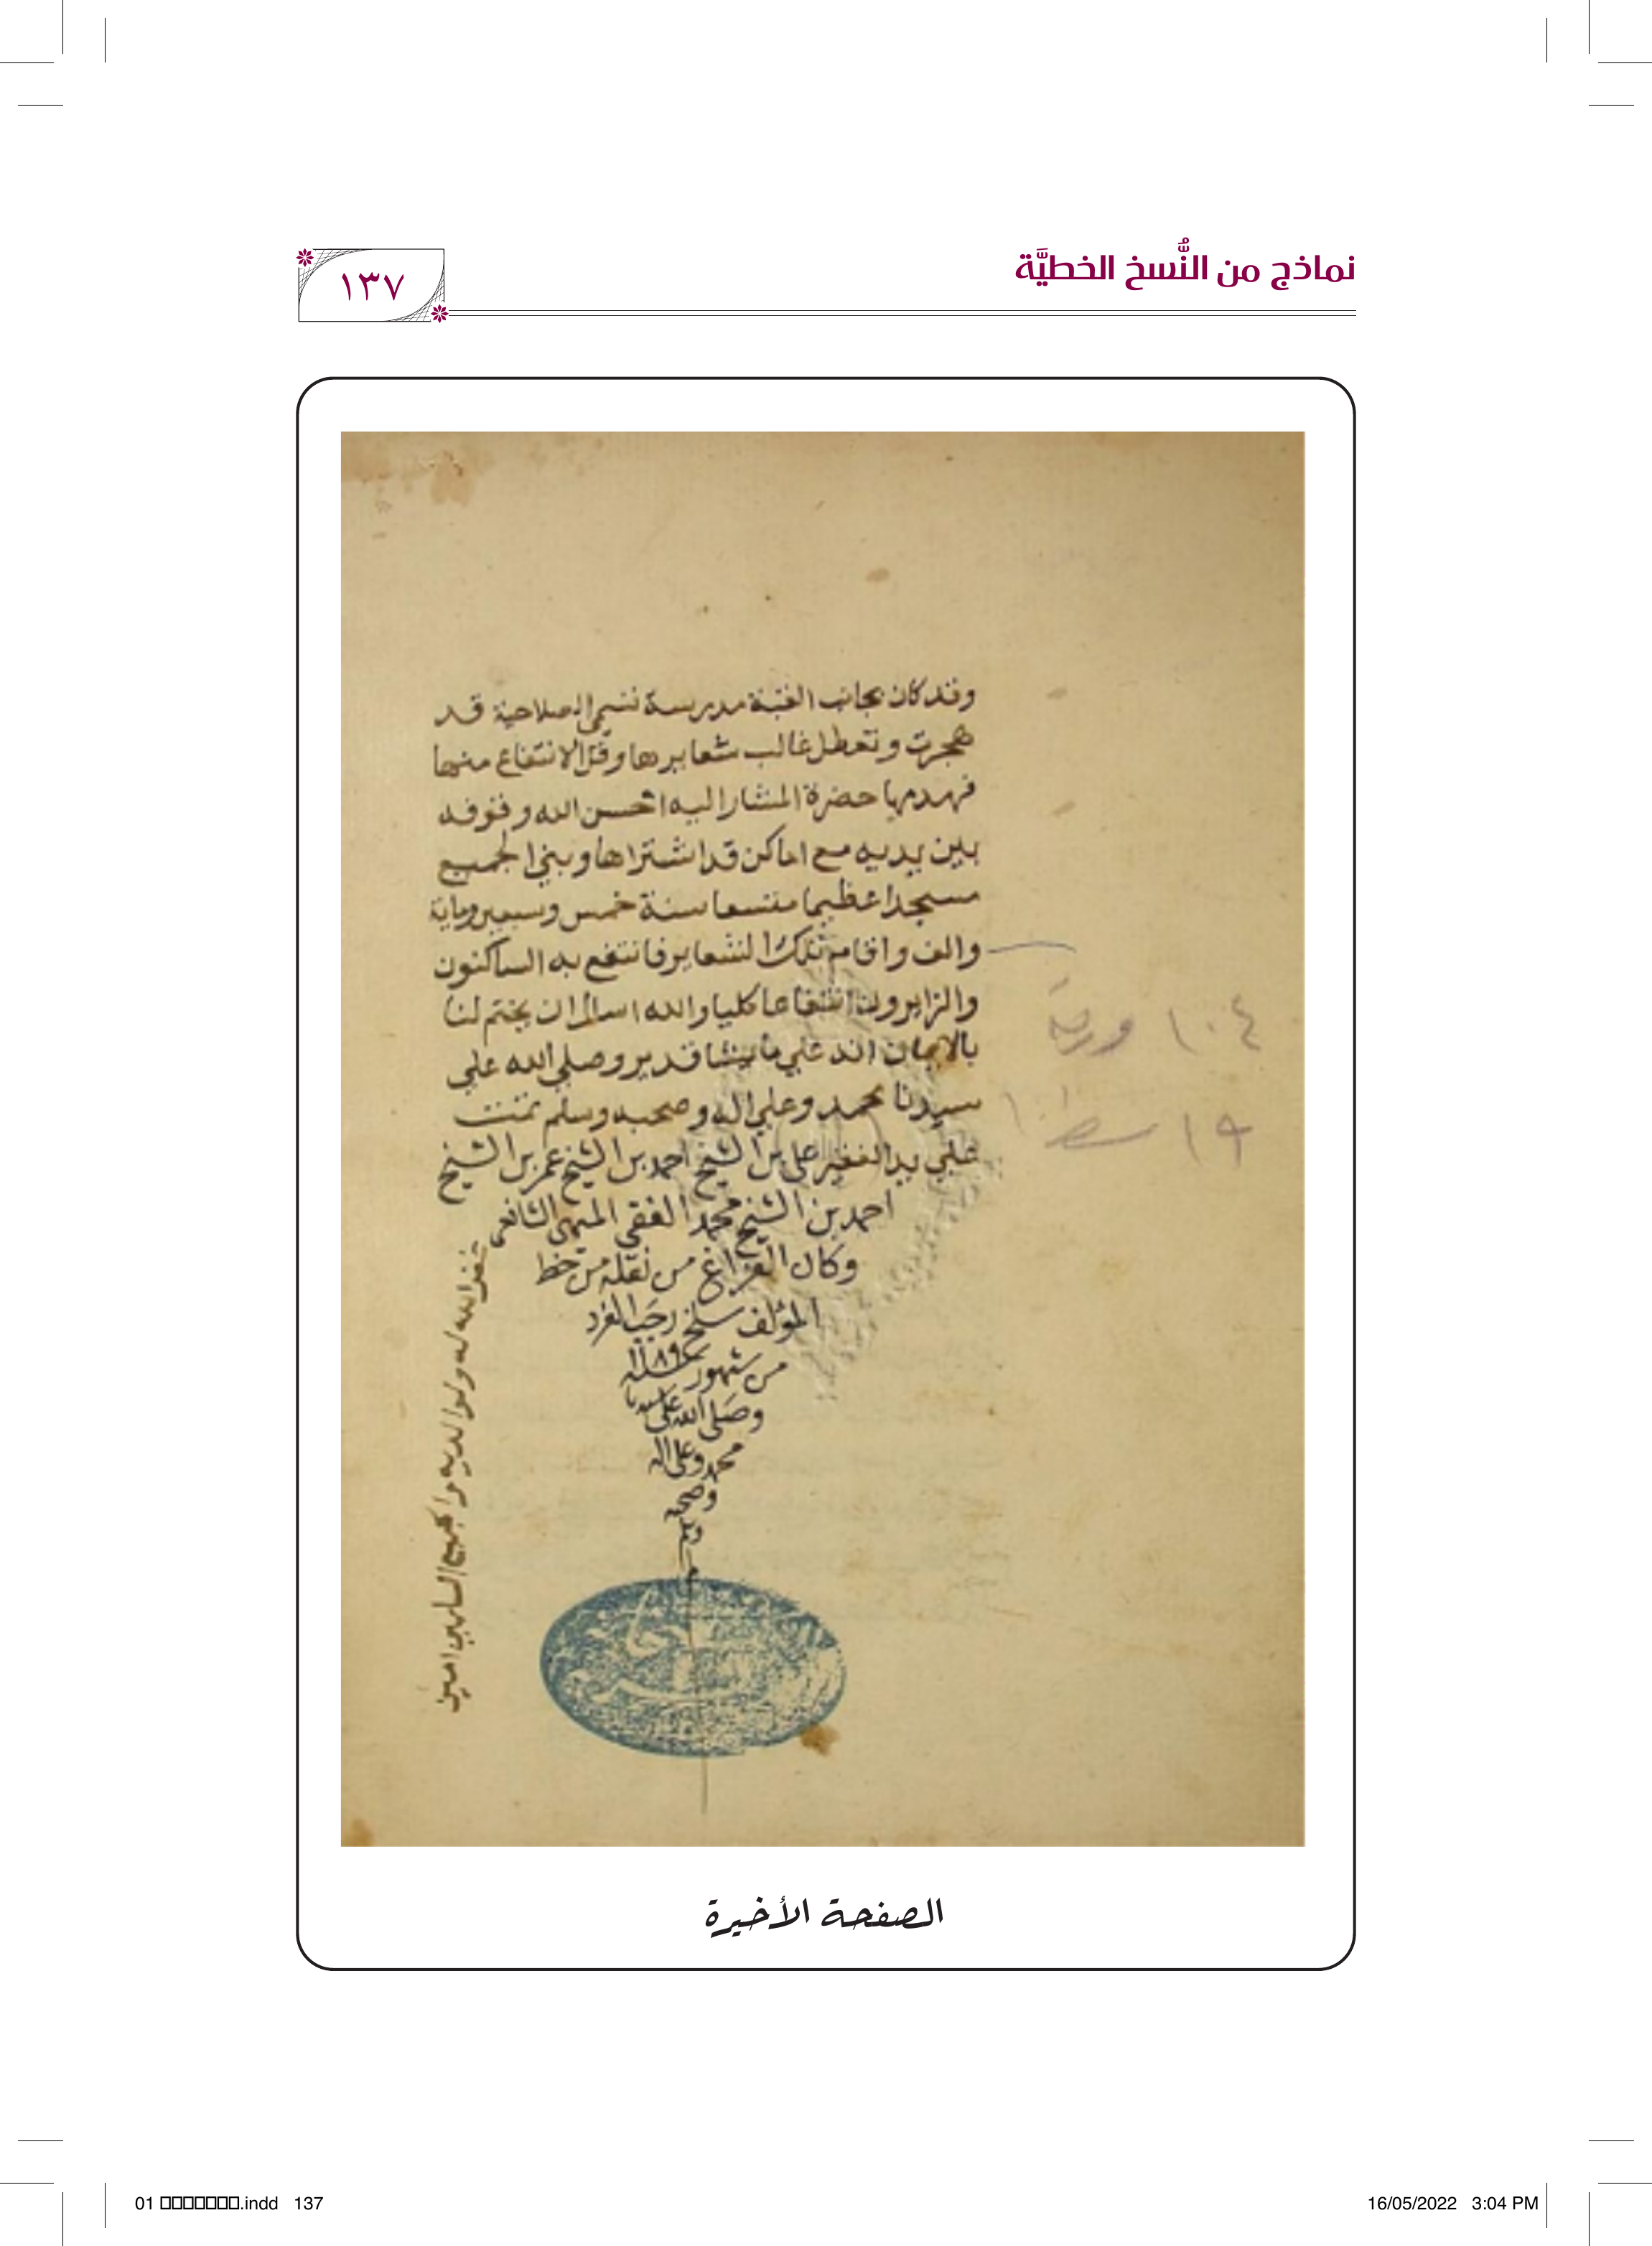 نماذج من النُّسخ الخطيَّة
١٣٧
وقد كان بجانب القبة مدرسة تسمي الصلاحية قد
هجرت وتعطل غالب شعايرها وقل الانتفاع منها
فهدمها حضرة المشار اليه احسن الله وقوفه
بين يديه مع اماكن قد اشتراها وبني الجميع
مسجدا عظيما متسعا سنة خمس وسبعين وماية
والف واقام تلك الشعاير فانتفع به الساكنون
والزايرون انتفاعا كليا والله اسال ان يختم لنا
بالايمان انه علي ما يشا قدير وصلي الله علي
سيدنا محمد وعلي اله وصحبه وسلم تمت
علي يد الفقير علي بن الشيخ احمد بن الشيخ عمر بن الشيخ
احمد بن الشيخ محمد الفقي الشافعي
وكان الفراغ من نقله من خط
المؤلف سلخ رجب الفرد
من شهور سنة ١١٨٩
وصلى الله على سيدنا
محمد وعلى اله
وصحبه
وسلم
غفر الله له ولوالديه ولجميع المسلمين امين
١٠٤ ورقة
١٩ سطرا
الصفحة الأخيرة
01 .indd 137
16/05/2022 3:04 PM